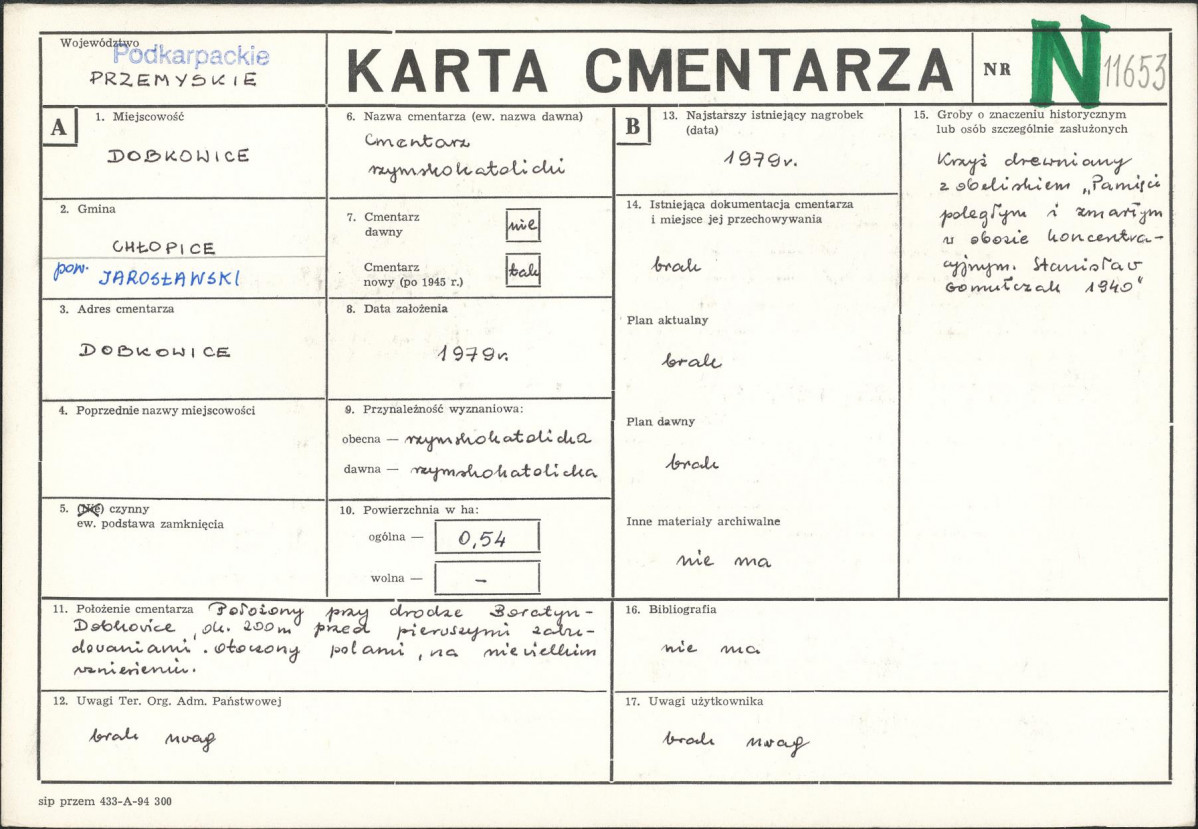 Województwo
Podkarpackie
PRZEMYSKIE
KARTA CMENTARZA
NR N 11653
A
1. Miejscowość
DOBKOWICE
2. Gmina
CHŁOPICE
pow. JAROSŁAWSKI
3. Adres cmentarza
DOBKOWICE
4. Poprzednie nazwy miejscowości
5. (Nie) czynny
ew. podstawa zamknięcia
6. Nazwa cmentarza (ew. nazwa dawna)
Cmentarz
rzymskokatolicki
7. Cmentarz
dawny
nie
Cmentarz
nowy (po 1945 r.)
tak
8. Data założenia
1979r.
9. Przynależność wyznaniowa:
obecna — rzymskokatolicka
dawna — rzymskokatolicka
10. Powierzchnia w ha:
ogólna — 0,54
wolna — –
11. Położenie cmentarza Położony przy drodze Boratyn-
Dobkowice, ok. 200m przed pierwszymi zabu-
dowaniami. Otoczony polami, na niewielkim
wzniesieniu.
12. Uwagi Ter. Org. Adm. Państwowej
brak uwag
B
13. Najstarszy istniejący nagrobek
(data)
1979r.
14. Istniejąca dokumentacja cmentarza
i miejsce jej przechowywania
brak
Plan aktualny
brak
Plan dawny
brak
Inne materiały archiwalne
nie ma
15. Groby o znaczeniu historycznym
lub osób szczególnie zasłużonych
Krzyż drewniany
z obeliskiem „Pamięci
poległym i zmarłym
w obozie koncentra-
cyjnym. Stanisław
Gomułczak 1940"
16. Bibliografia
nie ma
17. Uwagi użytkownika
brak uwag
sip przem 433-A-94 300